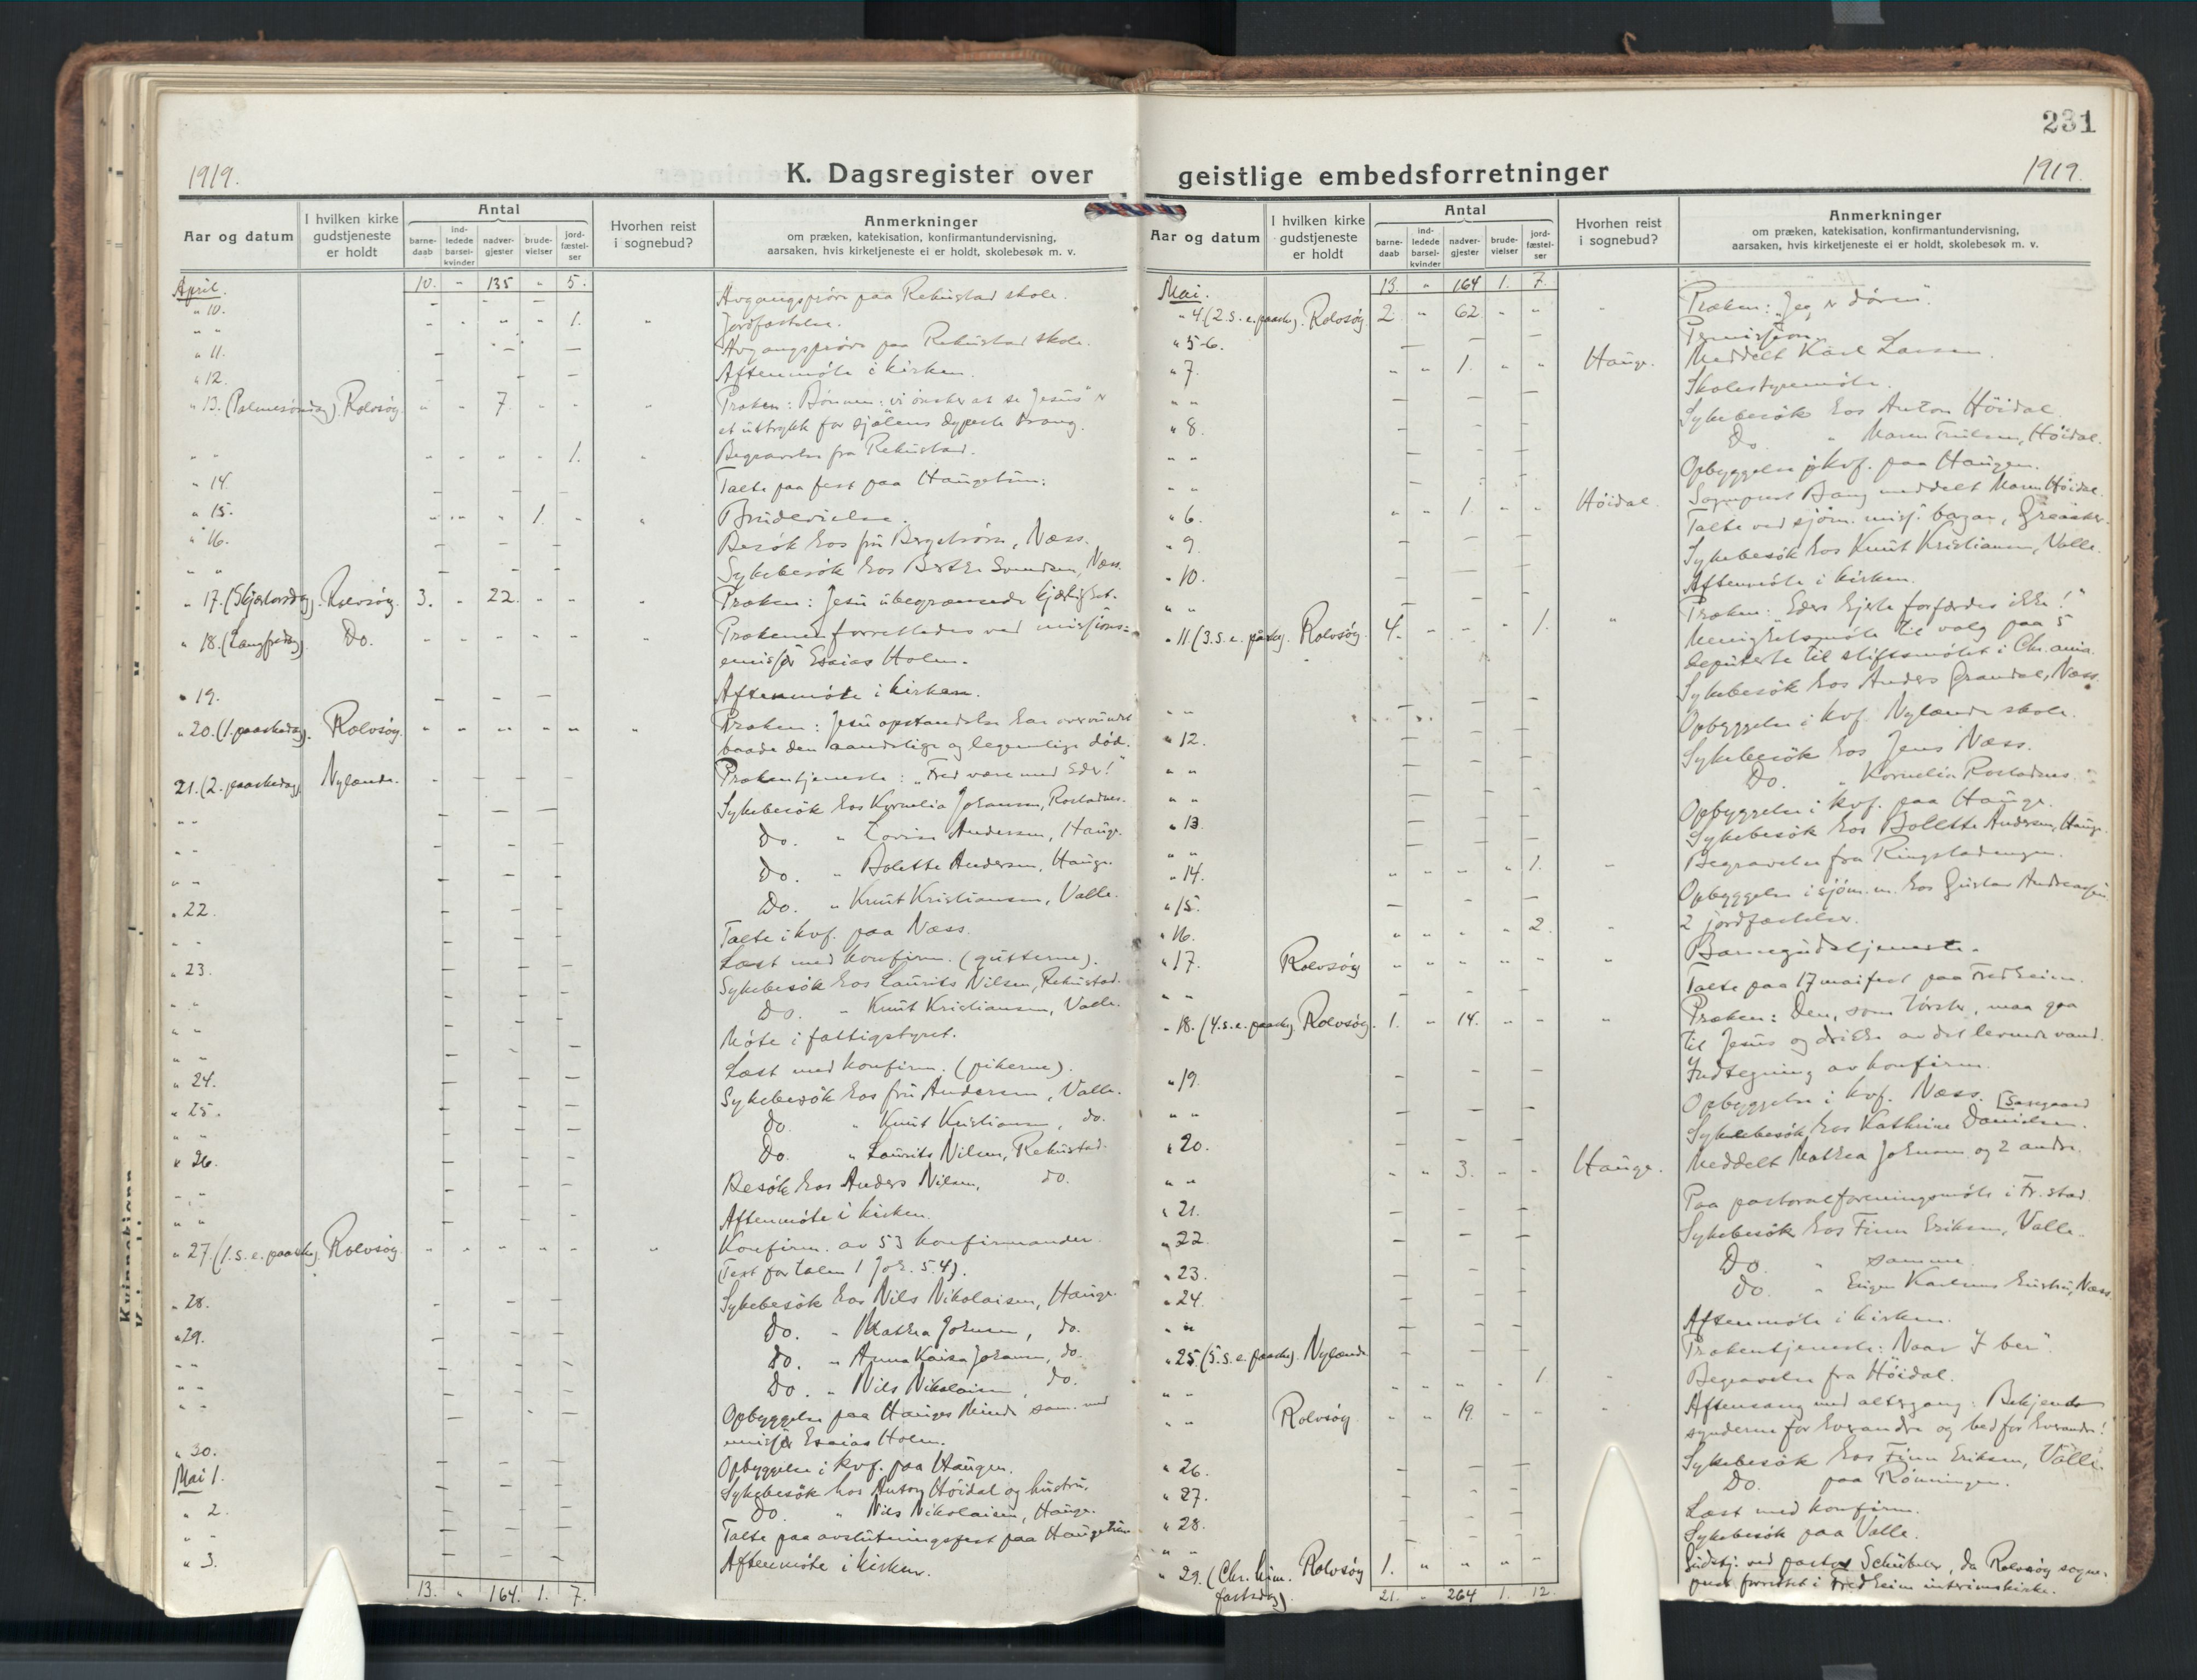 231
1919.
K. Dagsregister over geistlige embedsforretninger
1919.
Aar og datum
I hvilken kirke gudstjeneste er holdt
Antal
barne-daab
ind-ledede barsel-kvinder
nadver-gjester
brude-vielser
jord-fæstel-ser
Hvorhen reist i sognebud?
Anmerkninger
om præken, katekisation, konfirmantundervisning,
aarsaken, hvis kirketjeneste ei er holdt, skolebesøk m. v.
April. 10. " 135 " 5.
" 10. – – – – Avgangsprøve paa Rekustad skole.
" " " " " " 1. " Jordfæstelse.
" 11. – – – Avgangsprøve paa Rekustad skole.
" 12. – – – Aftenmøte i kirken.
" 13. (Palmesøndag). Rolvsøy " " 7. " " " Præken: Bønnen: vi ønsker at se Jesus" er
et uttrykk for sjælens dypeste trang.
" " " " " " 1. " Begravelse fra Rekustad.
" 14. – – – Talte paa fest paa Haugetun.
" 15. " " " 1. " " Brudevielse.
" 16. – – – Besøk hos fru Bergstrøm, Næss.
" " – – – Sykebesøk hos Berthe Svendsen, Næss.
" 17. (Skjærtorsdag). Rolvsøy. 3. " 22. " " " Præken: Jesu ubegrænsede kjærlighet.
" 18. (Langfredag). Do. " " " " " " Prækenen forrettedes ved missions=
emissær Esaias Holm.
" 19. – – – Aftenmøte i kirken.
" 20. (1. paaskedag). Rolvsøy. " " " " " " Præken: Jesu opstandelse har overvundet
baade den aandelige og legemlige død.
21. (2. paaskedag). Nylænde. – – – – Prækentjeneste: "Fred være med Eder!"
" " – – – Sykebesøk hos Kornelia Johansen, Rostadnes.
" " – – – Do. " Lovise Andersen, Hauge.
" " – – – Do. " Bolette Andersen, Hauge.
" 22. – – – Do. " Knut Kristiansen, Valle.
" " – – – Talte i kvf. paa Næss.
" 23. – – – Læst med konfirm. (gutterne).
" " – – – Sykebesøk hos Laurits Nilsen, Rekustad.
" " – – – Do. " Knut Kristiansen, Valle.
" " – – – Møte i fattigstyret.
" 24. – – – Læst med konfirm. (pikerne).
" 25. – – – Sykebesøk hos fru Andersen, Valle.
" " – – – Do. " Knut Kristiansen, do.
" 26. – – – Do. " Laurits Nilsen, Rekustad.
" " – – – Besøk hos Anders Nilsen, do.
" " – – – Aftenmøte i kirken.
" 27. (1. s. e. paaske). Rolvsøy. " " " " " " Konfirm. av 53 konfirmander.
(Text for talen 1 Joh. 5.4).
" 28. – – – Sykebesøk hos Nils Nikolaisen, Hauge.
" 29. – – – Do. " Mathea Johnsen, do.
" " – – – Do. " Anna Kaisa Johansen, do.
" " – – – Do. " Nils Nikolaisen, do.
" " – – – Opbyggelse paa Hauges Minde sam. med
emissær Esaias Holm.
" 30. – – – Opbyggelse i kvf. paa Haugen.
Mai 1. – – – Sykebesøk hos Anton Høidal og hustru.
" 2. – – – Do. " Nils Nikolaisen, Hauge.
" " – – – Talte paa avslutningsfest paa Haugetun
" 3. – – – Aftenmøte i kirken.
13. " 164. 1. 7.
Aar og datum
I hvilken kirke gudstjeneste er holdt
Antal
barne-daab
ind-ledede barsel-kvinder
nadver-gjester
brude-vielser
jord-fæstel-ser
Hvorhen reist i sognebud?
Anmerkninger
om præken, katekisation, konfirmantundervisning,
aarsaken, hvis kirketjeneste ei er holdt, skolebesøk m. v.
Mai. 13. " 164 1. 7.
" 4. (2. s. e. paaske). Rolvsøy 2. " 62 " " " Præken: "Jeg er døren".
" 5-6. – – – Permission.
" 7. " " 1. " " Hauge. Meddelt Karl Larsen.
" " – – – Skolestyremøte.
" 8. – – – Sykebesøk hos Anton Høidal.
" " – – – Do. " Maren Truelsen, Høidal.
" " – – – Opbyggelse i kvf. paa Haugen.
" 6. " " 1. " " Høidal Sogneprest Bang meddelt Maren Høidal.
" 9. – – – Talte ved sjøm. misj. bazar, Greaaker.
" 10. – – – Sykebesøk hos Knut Kristiansen, Valle.
" " – – – Aftenmøte i kirken.
" 11. (3. s. e. paaske). Rolvsøy. 4. " " " 1. " Præken: "Eders hjerte forfærdes ikke!"
Menighetsmøte til valg paa 5
deputerte til stiftsmøtet i Chr.ania.
" " – – – Sykebesøk hos Anders Grandal, Næss.
" 12. – – – Opbyggelse i kvf. Nylænde skole.
" " – – – Sykebesøk hos Jens Næss.
" " – – – Do. " Kornelia Rostadnes.
" 13. – – – Opbyggelse i kvf. paa Hauge.
" " – – – Sykebesøk hos Bolette Andersen, Hauge.
" 14. " " " " 1. " Begravelse fra Ringstadengen.
" 15. – – – Opbyggelse i sjøm. m. hos Gustav Andreassen.
" 16. " " " " 2. " 2 jordfæstelser.
" 17. Rolvsøy " " " " " " Barnegudstjeneste.
" " – – – Talte paa 17 maifest paa Fredheim.
" 18. (4. s. e. paaske). Rolvsøy. 1. " 14. " " " Præken: Den, som tørster, maa gaa
til Jesus og drikke av det levende vand.
" 19. – – – Indtegning av konfirm.
" " – – – Opbyggelse i kvf. Næss.
" 20. – – – Sykebesøk hos Kathrine Danielsen. [Sørengaard
" " " " 3. " " Hauge. Meddelt Mathea Johnsen og 2 andre.
" 21. – – – Paa pastoralforeningsmøte i Fr.stad.
" 22. – – – Sykebesøk hos Finn Eriksen, Valle.
" 23. – – – Do. " samme.
" 24. – – – Do. " Eugen Karlsens hustru, Næss.
" " – – – Aftenmøte i kirken.
" 25. (5. s. e. paaske). Nylænde – – – Prækentjeneste: Naar I ber".
" " " " " " 1. " Begravelse fra Høidal.
" " Rolvsøy. " " 19. " " " Aftensang med altergang: Bekjend
synderne for hverandre og bed for hverandre!
" 26. – – – Sykebesøk hos Finn Eriksen, Valle.
" 27. – – – Do. paa Rønningen.
" 28. – – – Læst med konfirm.
" " – – – Sykebesøk paa Valle.
" 29. (Chr. him. Rolvsøy 1. " " " " Gudstj. ved pastor Schübeler, da Rolvsøy sogne-
fartsdag). prest forrettet i Fredheim interimskirke.
21. " 264 1. 12.